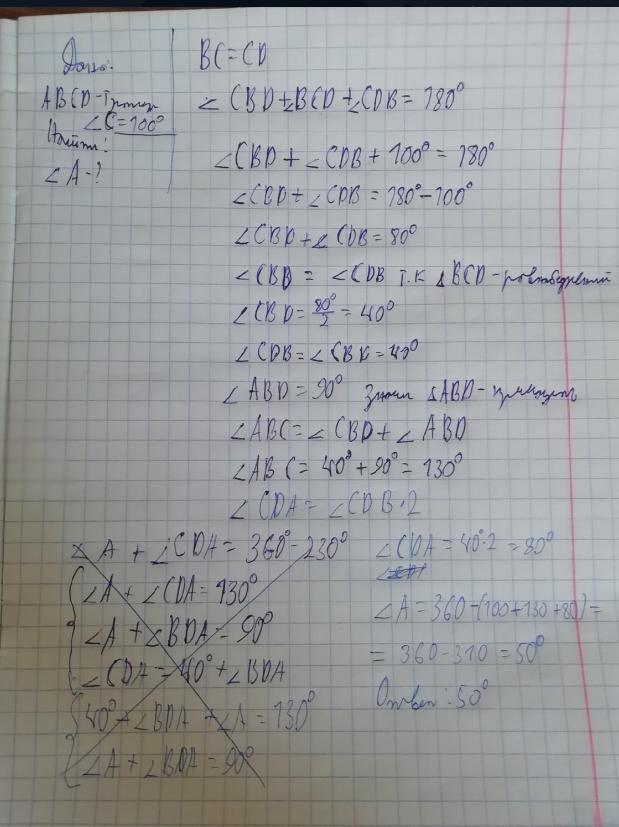 Дано:
ABCD-трапец
∠C=100°
Найти:
∠A-?
BC=CD
∠CBD+∠BCD+∠CDB=180°
∠CBD+∠CDB+100°=180°
∠CBD+∠CDB=180°-100°
∠CBD+∠CDB=80°
∠CBD=∠CDB т.к △BCD-равнобедренный
∠CBD=80°/2=40°
∠CDB=∠CBD=40°
∠ABD=90° Значит △ABD-прямоуголь
∠ABC=∠CBD+∠ABD
∠ABC=40°+90°=130°
∠CDA=∠CDB·2
∠A+∠CDA=360°-230°
∠A+∠CDA=130°
∠A+∠BDA=90°
∠CDA=40°+∠BDA
40°+∠BDA+∠A=130°
∠A+∠BDA=90°
∠CDA=40°·2=80°
∠A=360-(100+130+80)=
=360-310=50°
Ответ:50°